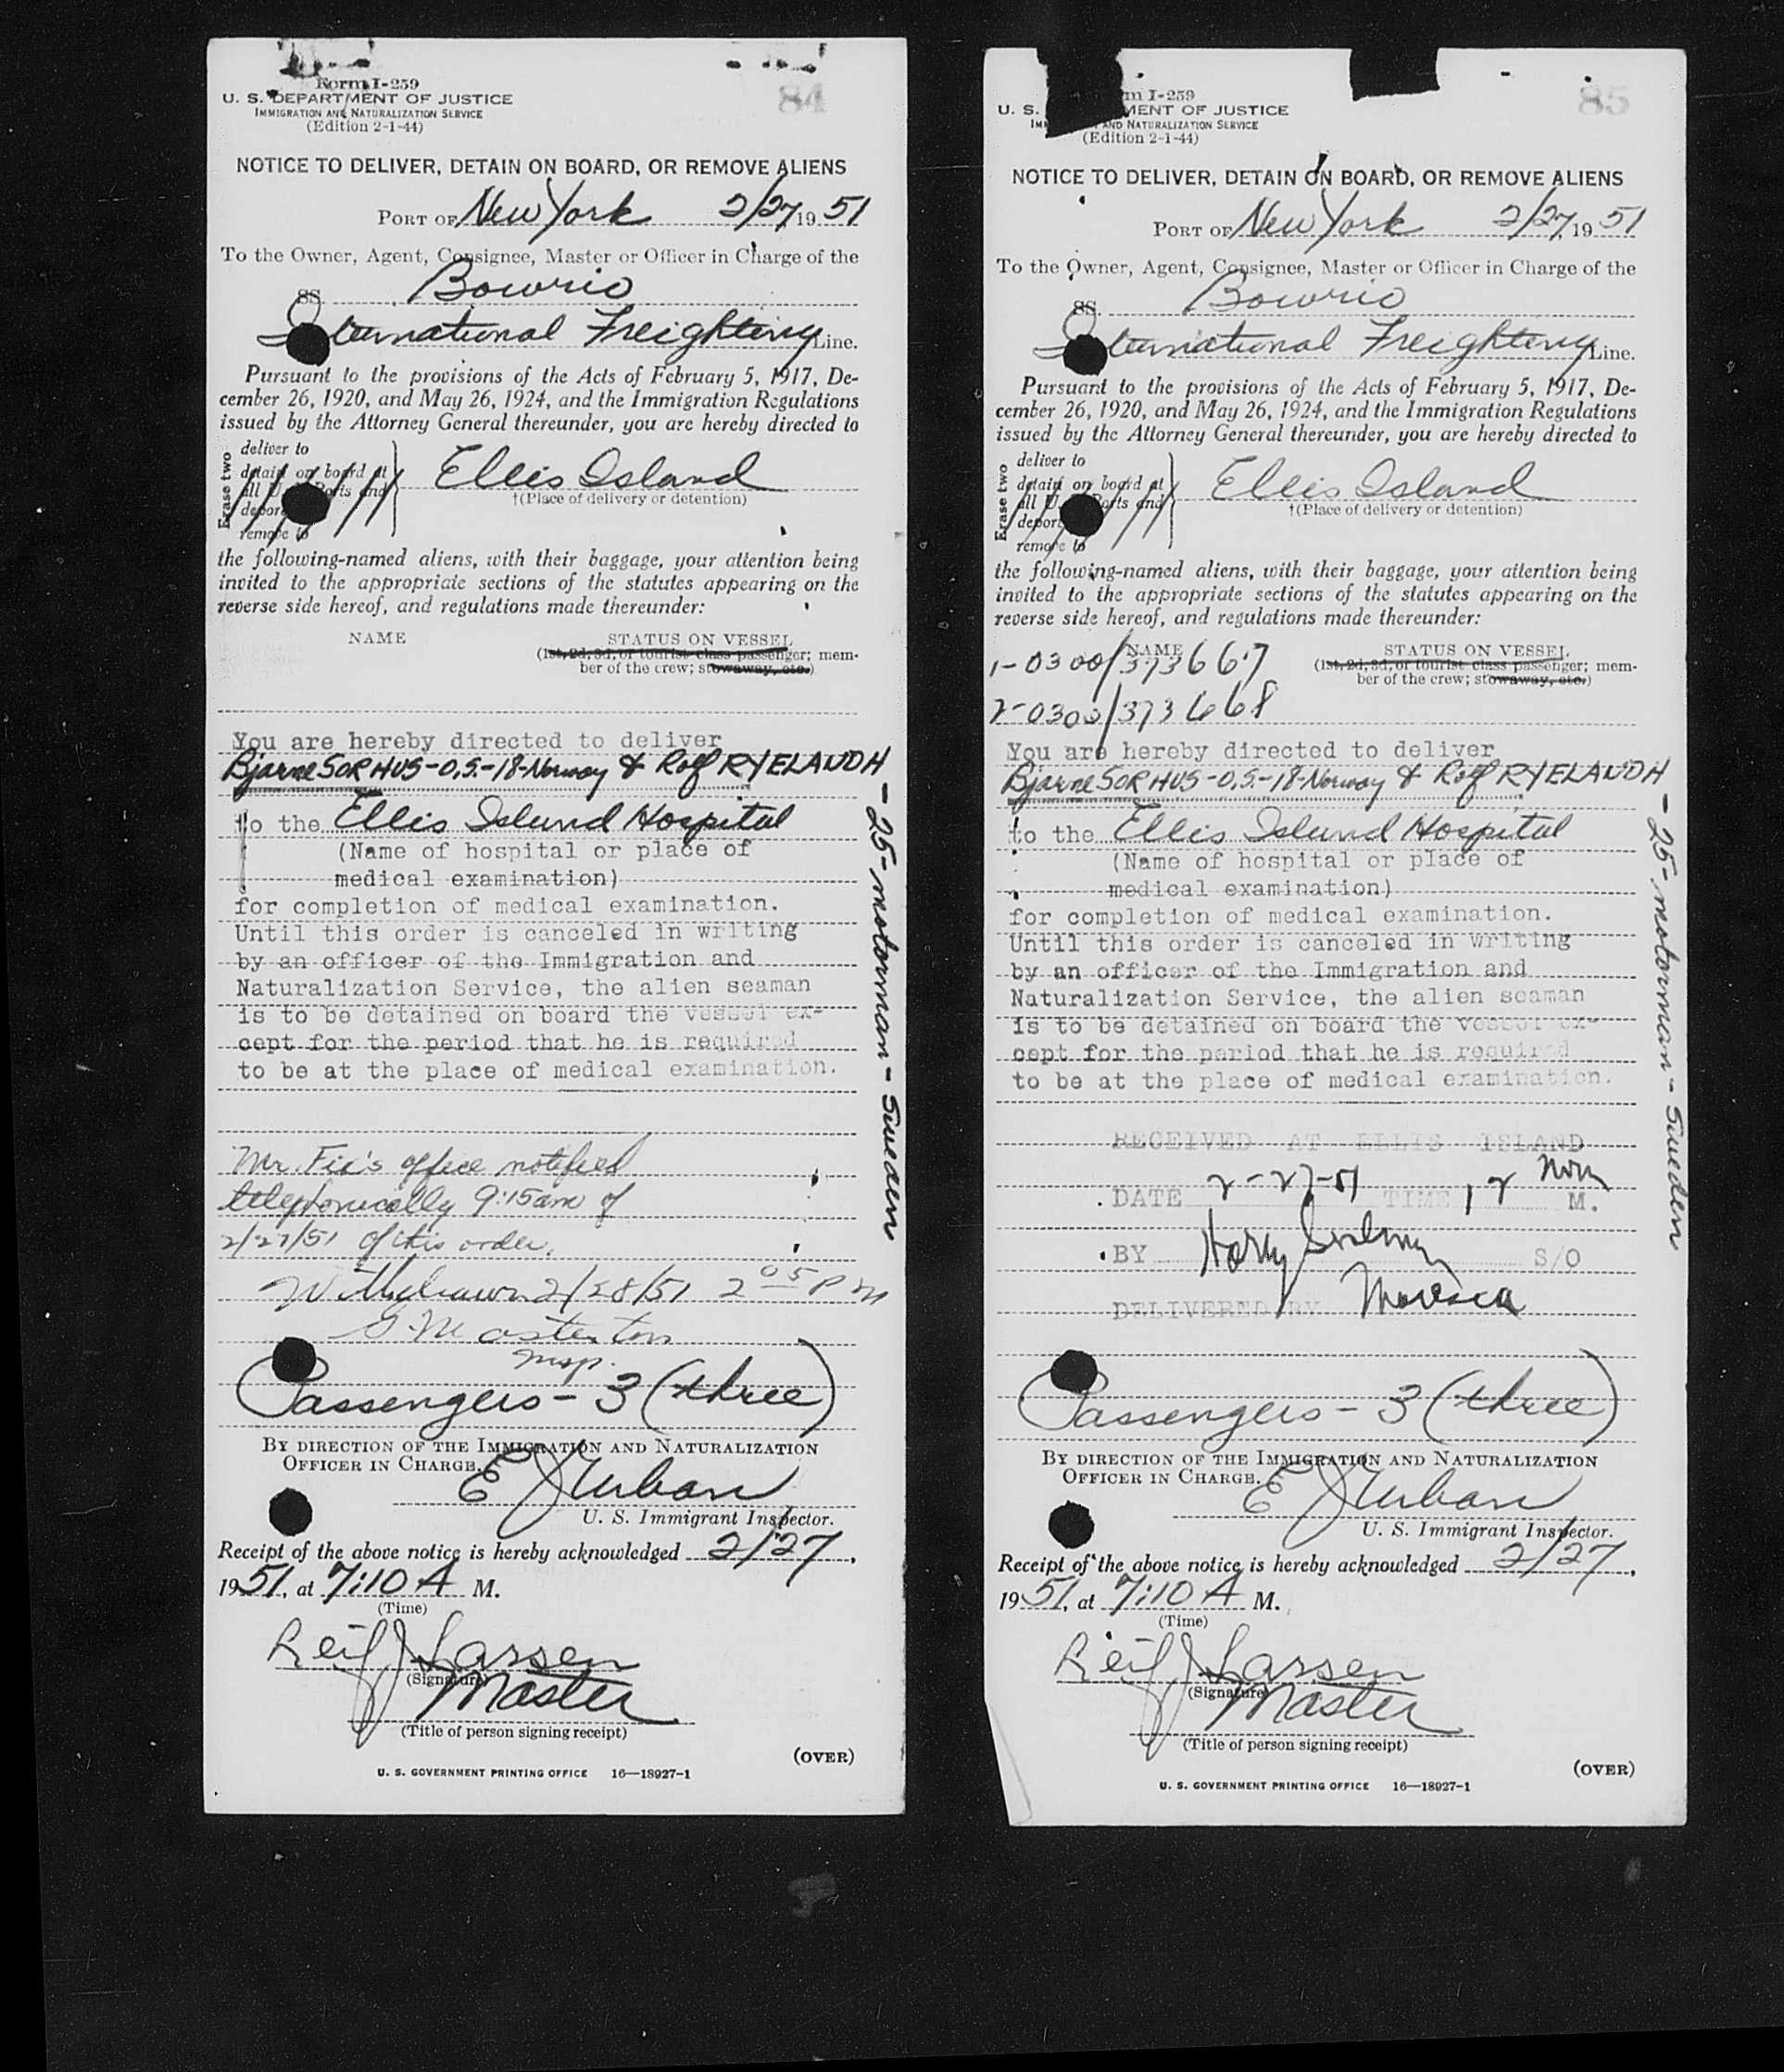 Form I-259
U. S. DEPARTMENT OF JUSTICE
IMMIGRATION AND NATURALIZATION SERVICE
(Edition 2-1-44)
84
NOTICE TO DELIVER, DETAIN ON BOARD, OR REMOVE ALIENS
PORT OF New York 2/27, 19 51
To the Owner, Agent, Consignee, Master or Officer in Charge of the
SS. Bowrio
International Freighting Line.
Pursuant to the provisions of the Acts of February 5, 1917, De-
cember 26, 1920, and May 26, 1924, and the Immigration Regulations
issued by the Attorney General thereunder, you are hereby directed to
Erase two
deliver to
detain on board at
all U. S. Ports and
deport
remove to
Ellis Island
†(Place of delivery or detention)
the following-named aliens, with their baggage, your attention being
invited to the appropriate sections of the statutes appearing on the
reverse side hereof, and regulations made thereunder:
NAME
STATUS ON VESSEL
(1st, 2d, 3d, or tourist class passenger; mem-
ber of the crew; stowaway, etc.)
You are hereby directed to deliver
Bjarne SORHUS-O.S.-18-Norway & Rolf RYELANDH
- 25 - motorman - Sweden
to the Ellis Island Hospital
(Name of hospital or place of
medical examination)
for completion of medical examination.
Until this order is canceled in writing
by an officer of the Immigration and
Naturalization Service, the alien seaman
is to be detained on board the vessel ex-
cept for the period that he is required
to be at the place of medical examination.
Mr. office notified
telephonically 9:15 am of
2/27/51 of this order.
Withdrawn 2/28/51 2 05 P M
G. Masterton
Insp.
Passengers - 3 (three)
BY DIRECTION OF THE IMMIGRATION AND NATURALIZATION
OFFICER IN CHARGE.
E J Urban
U. S. Immigrant Inspector.
Receipt of the above notice is hereby acknowledged 2/27,
19 51, at 7:10 A M.
(Time)
Leif J Larsen
(Signature)
Master
(Title of person signing receipt)
(OVER)
U. S. GOVERNMENT PRINTING OFFICE 16—18927-1
Form I-259
U. S. DEPARTMENT OF JUSTICE
IMMIGRATION AND NATURALIZATION SERVICE
(Edition 2-1-44)
85
NOTICE TO DELIVER, DETAIN ON BOARD, OR REMOVE ALIENS
PORT OF New York 2/27, 19 51
To the Owner, Agent, Consignee, Master or Officer in Charge of the
SS. Bowrio
International Freighting Line.
Pursuant to the provisions of the Acts of February 5, 1917, De-
cember 26, 1920, and May 26, 1924, and the Immigration Regulations
issued by the Attorney General thereunder, you are hereby directed to
Erase two
deliver to
detain on board at
all U. S. Ports and
deport
remove to
Ellis Island
†(Place of delivery or detention)
the following-named aliens, with their baggage, your attention being
invited to the appropriate sections of the statutes appearing on the
reverse side hereof, and regulations made thereunder:
NAME
STATUS ON VESSEL
(1st, 2d, 3d, or tourist class passenger; mem-
ber of the crew; stowaway, etc.)
1-0300/373667
2-0300/373668
You are hereby directed to deliver
Bjarne SORHUS-O.S.-18-Norway & Rolf RYELANDH
- 25 - motorman - Sweden
to the Ellis Island Hospital
(Name of hospital or place of
medical examination)
for completion of medical examination.
Until this order is canceled in writing
by an officer of the Immigration and
Naturalization Service, the alien seaman
is to be detained on board the vessel ex-
cept for the period that he is required
to be at the place of medical examination.
RECEIVED AT ELLIS ISLAND
DATE 2-27-51 TIME 12 Noon M.
BY Harry S/O
DELIVERED BY
Passengers - 3 (three)
BY DIRECTION OF THE IMMIGRATION AND NATURALIZATION
OFFICER IN CHARGE.
E J Urban
U. S. Immigrant Inspector.
Receipt of the above notice is hereby acknowledged 2/27,
19 51, at 7:10 A M.
(Time)
Leif J Larsen
(Signature)
Master
(Title of person signing receipt)
(OVER)
U. S. GOVERNMENT PRINTING OFFICE 16—18927-1